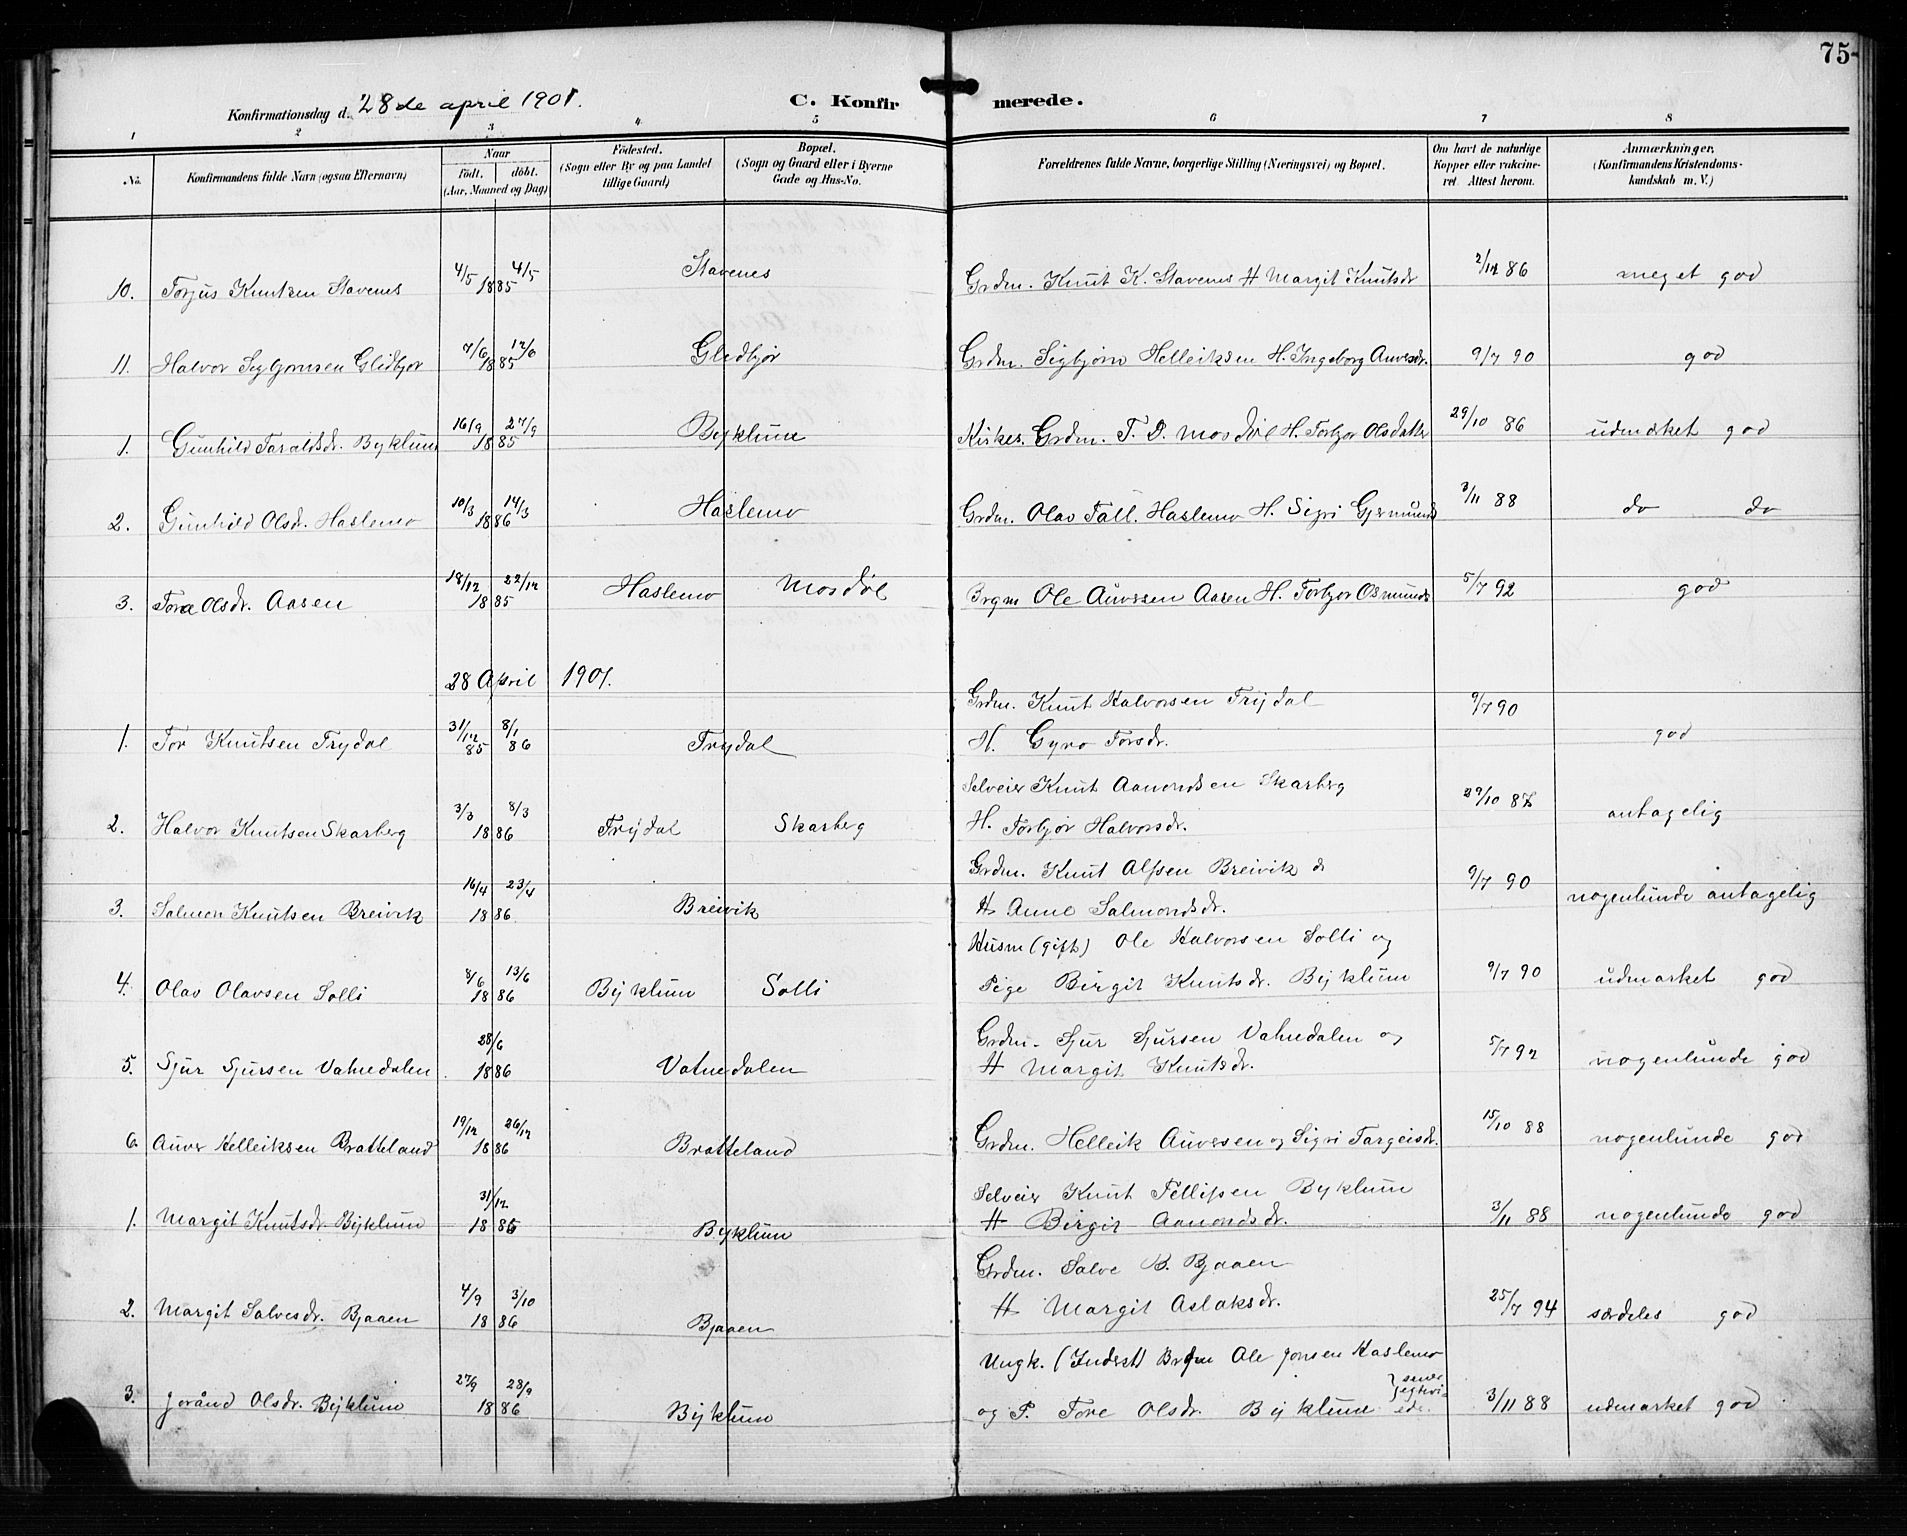 75
Konfirmationsdag d. 28de april 1901. C. Konfirmerede.
1 2 3 4 5 6 7 8
No. Konfirmandens fulde Navn (ogsaa Efternavn) Naar Født. døbt. (Aar, Maaned og Dag) Fødested. (Sogn eller By og paa Landet tillige Gaard) Bopæl. (Sogn og Gaard eller i Byerne Gade og Hus-No. Forældrenes fulde Navne, borgerlige Stilling (Næringsvei) og Bopæl. Om havt de naturlige Kopper eller vakcineret. Attest herom. Anmærkninger, (Konfirmandens Kristendomskundskab m. V.)
10. Torjus Knutsen Stavenes 4/5 4/5 1885 Stavenes Grdm. Knut K. Stavenes H Margit Knutsdr 86 meget god
11. Halvor Sigbjørnsen Glidbjør 7/6 12/6 1885 Glidbjør Grdm. Sigbjørn Helleiksen H. Ingeborg Auversdr. 9/7 90 god
1. Gunhild Taraldsdr. Byklum 16/9 27/9 1885 Byklum Kirkes. Grdm. T. D. Mosdøl H. Torbjør Olsdatter 29/10 86 udmærket god
2. Gunhild Olsdr. Haslemo 10/3 14/3 1886 Haslemo Grdm. Olav Tall. Haslemo H. Sigri Gjermunds 3/11 88 do do
3. Tora Olsdr. Aasen 18/12 22/12 1885 Haslemo Mosdøl Brgm Ole Auversen Aasen H. Torbjør Osmunds 5/7 92 god
28 April 1901.
1. Tor Knutsen Trydal 31/12 85 8/1 86 Trydal Grdm. Knut Halvorsen Trydal H. Gyro Torsdr. 9/7 90 god
2. Halvor Knutsen Skarberg 3/3 8/3 1886 Trydal Skarberg Selveier Knut Aamondsen Skarberg H. Torbjør Halvorsdr. 29/10 antagelig
3. Salmon Knutsen Breivik 16/4 23/4 1886. Breivik Grdm. Knut Alfsen Breivik & H Anne Salmondsdr. 9/7 90 nogenlunde antagelig
4. Olav Olavsen Solli 8/6 13/6 1886 Byklum Solli Husm (gift) Ole Halvorsen Solli og Pige Birgit Knutsdr. Byklum 9/7 90 udmærket god
5. Sjur Sjursen Vatnedalen 28/6 1886 Vatnedalen Grdm. Sjur Sjursen Vatnedalen og H Margit Knutsdr. 5/7 92 nogenlunde god
6. Auver Helleiksen Bratteland 19/12 26/12 1886 Bratteland Grdm. Helleik Auversen og Sigri Targeisdr. 15/10 88 nogenlunde god
1. Margit Knutsdr. Byklum 31/12 1885 Byklum Selveier Knut Tellefsen Byklum H Birgit Aamondsdr. 3/11 88 nogenlunde god
2. Margit Salvesdr. Bjaaen 4/9 3/10 1886 Bjaaen Grdm. Salve B. Bjaaen H Margit Aslaksdr. 25/7 94 særdeles god
3. Joränd Olsdr. Byklum 27/9 28/9 1886. Byklum Ungk. (Inderst) Ole Jonsen Haslemo og P. Tore Olsdr. Byklum 3/11 88 udmærket god